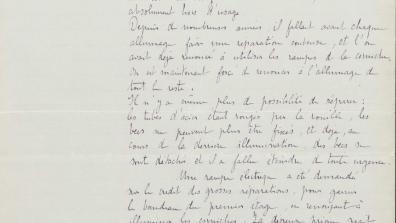 absolument hors d'usage
Depuis de nombreuses années il fallait avant chaque
allumage faire une réparation couteuse, et l'on
avait déjà renoncé à utiliser les rampes de la corniche,
On est maintenant forcé de renoncer à l'allumage de
tout le reste.
Il n'y a même plus de possibilité de réparer;
les tubes d'acier étant rongés par la rouille, les
becs ne peuvent plus être fixés, et déjà, au
cours de la dernière illumination, des becs se
sont détachés et il a fallu éteindre de toute urgence.
Une rampe électrique a été demandée
sur le crédit des grosses réparations, pour garnir
le bandeau du premier étage, en renonçant à
illuminer les corniches,